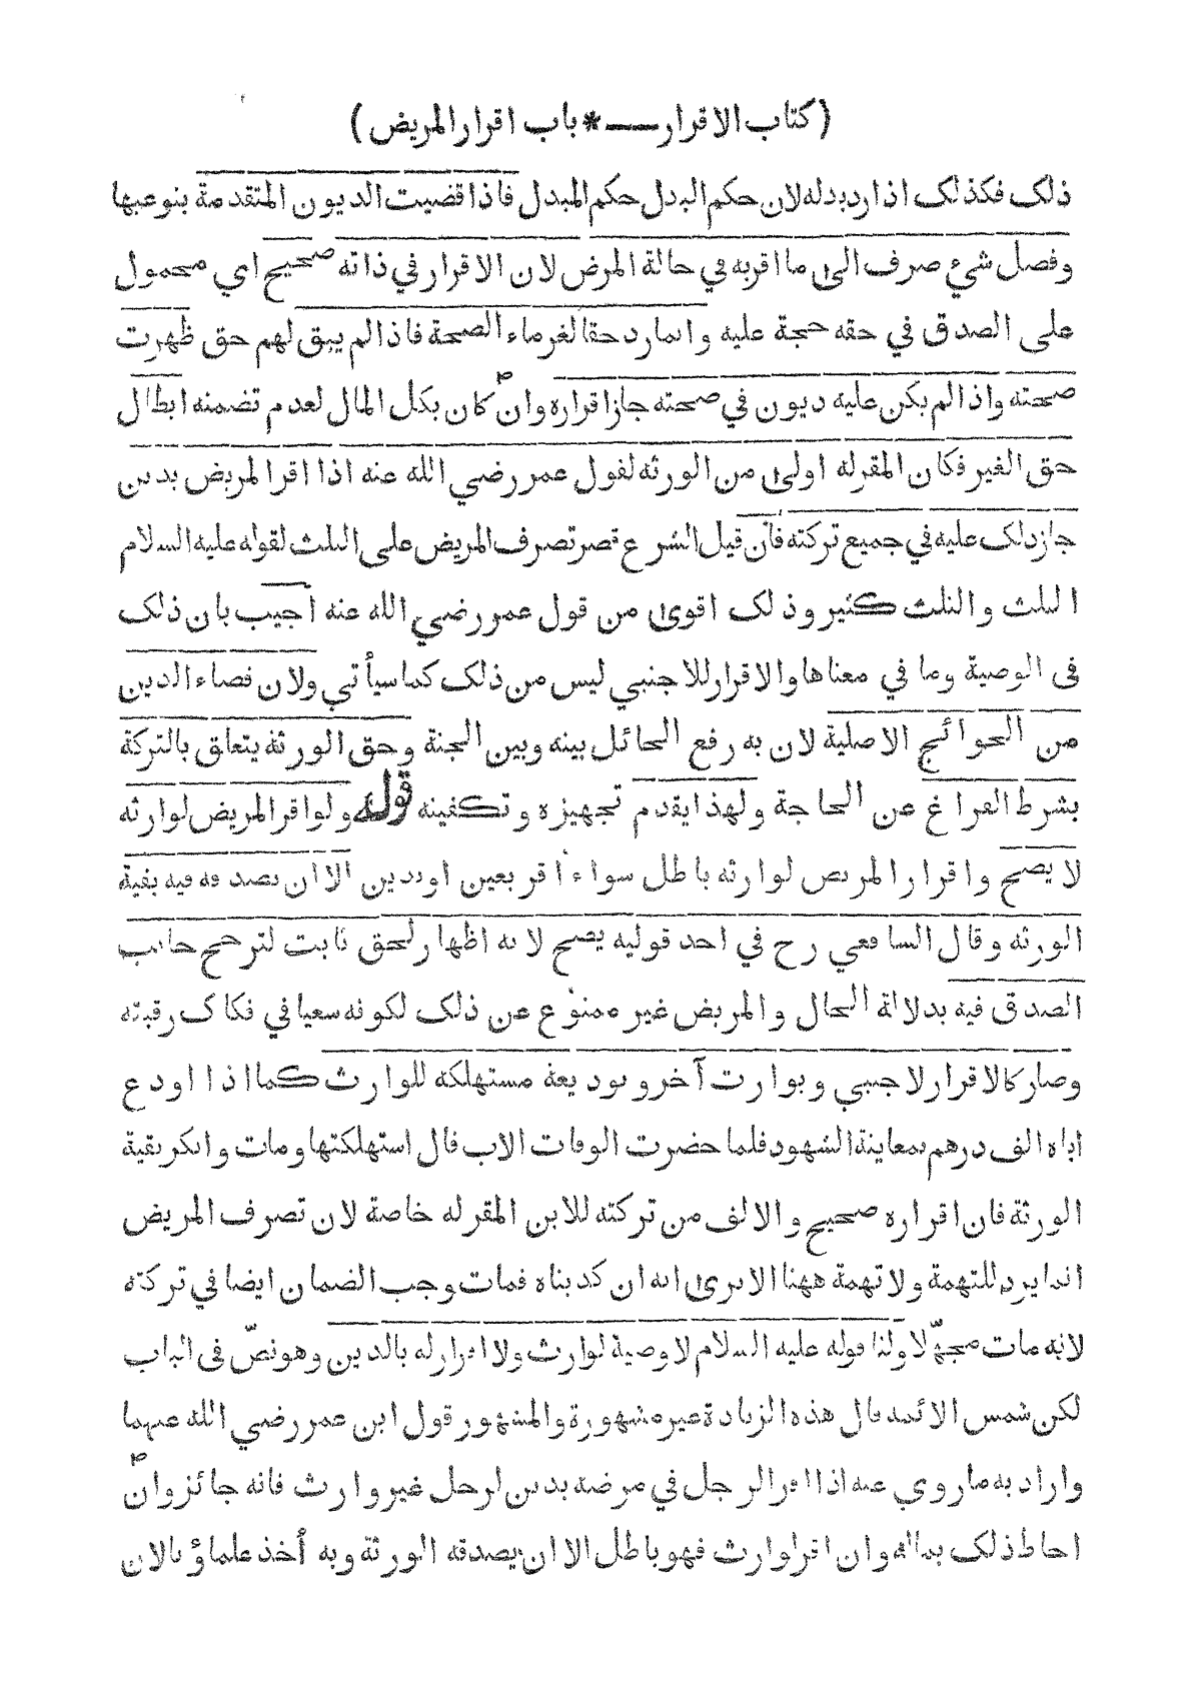 (كتاب الاقرار — * باب اقرار المريض)
ذلك فكذلك اذا رد بدله لان حكم البدل حكم المبدل فاذا قضيت الديون المتقدمة بنوعيها
وفصل شيء صرف الى ما اقربه في حالة المرض لان الاقرار في ذاته صحيح اي محمول
على الصدق في حقه حجة عليه وانما رد حقا لغرماء الصحة فاذا لم يبق لهم حق ظهرت
صحته واذا لم يكن عليه ديون في صحته جاز اقراره وان كان بكل المال لعدم تضمنه ابطال
حق الغير فكان المقرله اولى من الورثه لقول عمر رضي الله عنه اذا اقر المريض بدين
جاز ذلك عليه في جميع تركته فان قيل الشرع قصر تصرف المريض على الثلث لقوله عليه السلام
الثلث والثلث كثير وذلك اقوى من قول عمر رضي الله عنه أجيب بان ذلك
فى الوصية وما في معناها والاقرار للاجنبي ليس من ذلك كما سيأتي ولان قضاء الدين
من الحوائج الاصلية لان به رفع الحائل بينه وبين الجنة وحق الورثة يتعلق بالتركة
بشرط الفراغ عن الحاجة ولهذا يقدم تجهيزه وتكفينه قوله ولو اقر المريض لوارثه
لا يصح واقرار المريض لوارثه باطل سواء اقر بعين اودين الا ان يصدقه فيه بقية
الورثه وقال الشافعي رح في احد قوليه يصح لانه اظهار لحق ثابت لترجح جانب
الصدق فيه بدلالة الحال والمريض غير ممنوع عن ذلك لكونه سعيا في فكاك رقبته
وصار كالاقرار لاجنبي وبوارث آخر وبوديعة مستهلكه للوارث كما اذا اودع
اباه الف درهم بمعاينة الشهود فلما حضرت الوفات الاب قال استهلكتها ومات وانكر بقية
الورثة فان اقراره صحيح والالف من تركته للابن المقرله خاصة لان تصرف المريض
انما يرد للتهمة ولا تهمة ههنا الا يرى انه ان كذبناه فمات وجب الضمان ايضا في تركته
لانه مات مجهّلا ولنا قوله عليه السلام لا وصية لوارث ولا اقرار له بالدين وهو نصّ فى الباب
لكن شمس الائمه قال هذه الزيادة غير مشهورة والمشهور قول ابن عمر رضي الله عنهما
واراد به ما روي عنه اذا اقر الرجل في مرضه بدين لرجل غير وارث فانه جائز وان
احاط ذلك بماله وان اقر لوارث فهو باطل الا ان يصدقه الورثة وبه أخذ علماؤنا لان